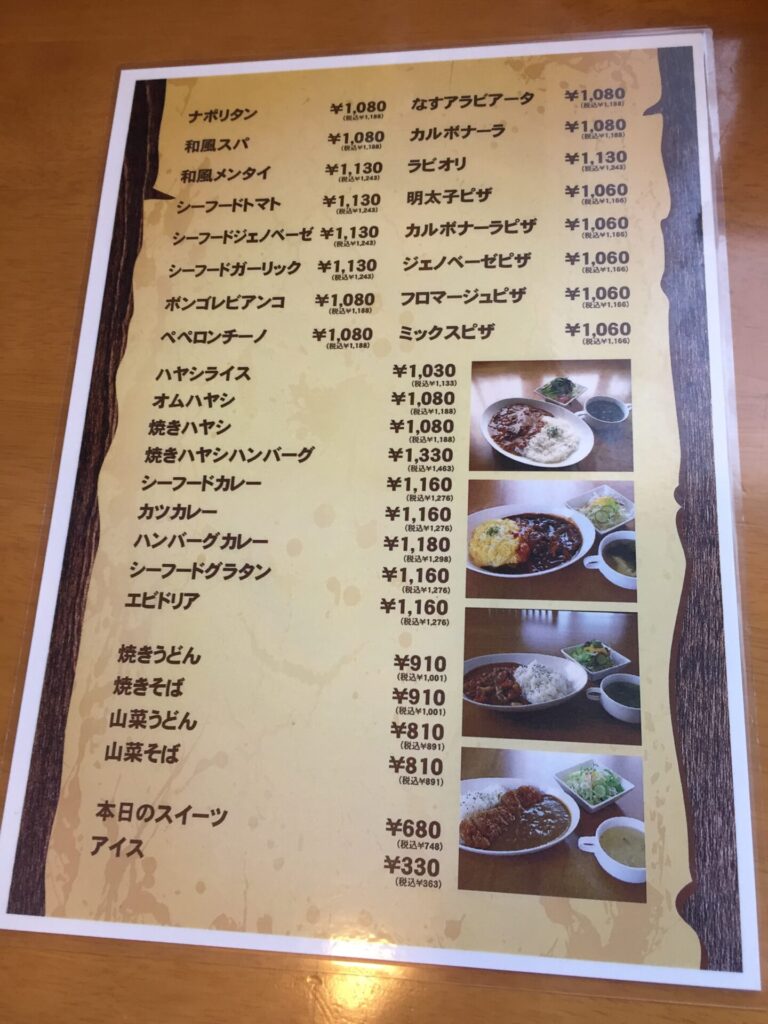 ナポリタン ¥1,080 (税込¥1,188)
和風スパ ¥1,080 (税込¥1,188)
和風メンタイ ¥1,130 (税込¥1,243)
シーフードトマト ¥1,130 (税込¥1,243)
シーフードジェノベーゼ ¥1,130 (税込¥1,243)
シーフードガーリック ¥1,130 (税込¥1,243)
ボンゴレビアンコ ¥1,080 (税込¥1,188)
ペペロンチーノ ¥1,080 (税込¥1,188)
なすアラビアータ ¥1,080 (税込¥1,188)
カルボナーラ ¥1,080 (税込¥1,188)
ラビオリ ¥1,130 (税込¥1,243)
明太子ピザ ¥1,060 (税込¥1,166)
カルボナーラピザ ¥1,060 (税込¥1,166)
ジェノベーゼピザ ¥1,060 (税込¥1,166)
フロマージュピザ ¥1,060 (税込¥1,166)
ミックスピザ ¥1,060 (税込¥1,166)
ハヤシライス ¥1,030 (税込¥1,133)
オムハヤシ ¥1,080 (税込¥1,188)
焼きハヤシ ¥1,080 (税込¥1,188)
焼きハヤシハンバーグ ¥1,330 (税込¥1,463)
シーフードカレー ¥1,160 (税込¥1,276)
カツカレー ¥1,160 (税込¥1,276)
ハンバーグカレー ¥1,180 (税込¥1,298)
シーフードグラタン ¥1,160 (税込¥1,276)
エビドリア ¥1,160 (税込¥1,276)
焼きうどん ¥910 (税込¥1,001)
焼きそば ¥910 (税込¥1,001)
山菜うどん ¥810 (税込¥891)
山菜そば ¥810 (税込¥891)
本日のスイーツ ¥680 (税込¥748)
アイス ¥330 (税込¥363)